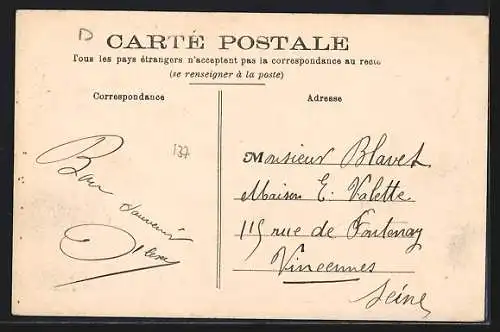 D
CARTE POSTALE
Tous les pays étrangers n'acceptent pas la correspondance au recto
(se renseigner à la poste)
Correspondance
Adresse
137
Bon
souvenir
Monsieur Blavet
Maison E. Valette
115 rue de Fontenay
Vincennes
Seine